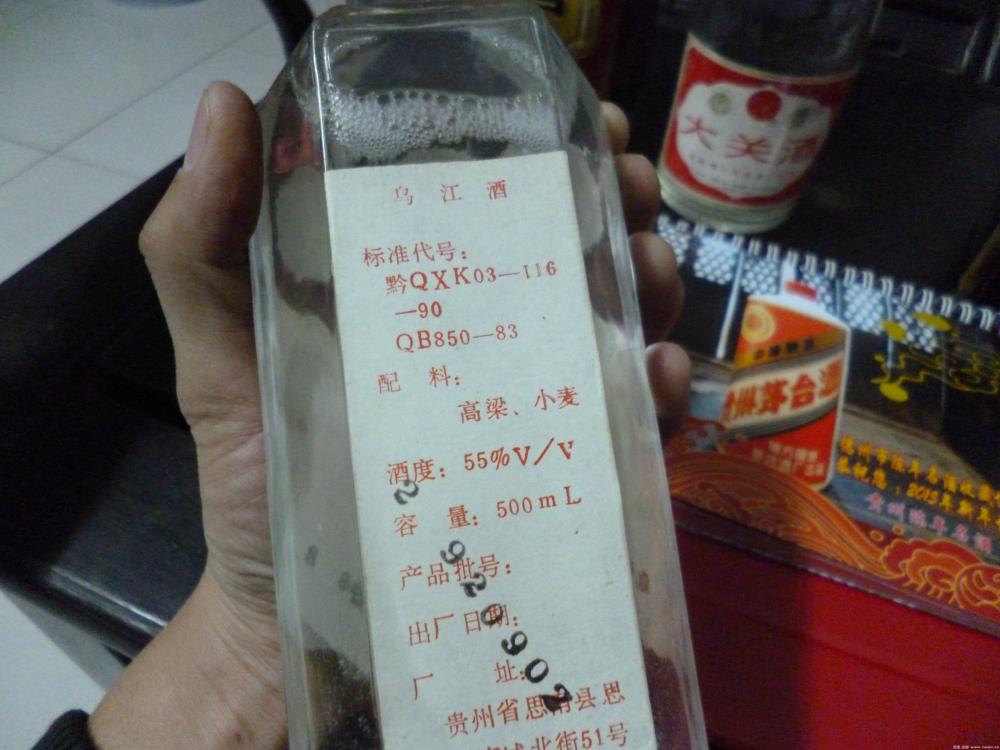 乌江酒
标准代号：
黔QXK03—I16
—90
QB850—83
配 料：
高梁、小麦
酒度：55%V/V
容 量：500mL
产品批号：
出厂日期：
厂 址：
贵州省思南县思
城北街51号
大关酒
贵州茅台酒
德州市陈年名酒收藏
恭祝您：2013年新年
贵州陈年名酒